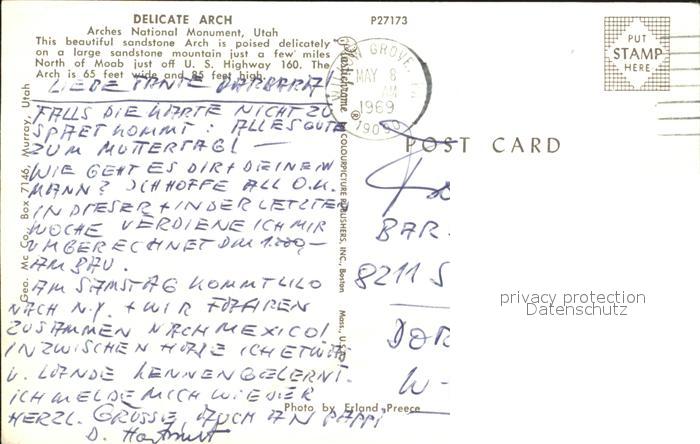 DELICATE ARCH
Arches National Monument, Utah
This beautiful sandstone Arch is poised delicately
on a large sandstone mountain just a few miles
North of Moab just off U. S. Highway 160. The
Arch is 65 feet wide and 85 feet high.
P27173
PUT
STAMP
HERE
GROVE,
MAY 8
AM
1969
19090
POST CARD
Geo. Mc Co., Box 7146, Murray, Utah
Plastichrome ® by COLOURPICTURE PUBLISHERS, INC., Boston Mass., U.S.A.
LIEBE TANTE BARBARA!
FALLS DIE KARTE NICHT ZU
SPAET KOMMT: ALLES GUTE
ZUM MUTTERTAG! —
WIE GEHT ES DIR + DEINEM
MANN? ICH HOFFE ALL O.K.
IN DIESER + IN DER LETZTEN
WOCHE VERDIENE ICH MIR
UMBERECHNET DM 1.200,-
AM BAU.
AM SAMSTAG KOMMT LILO
NACH N.Y. + WIR FAHREN
ZUSAMMEN NACH MEXICO!
INZWISCHEN HABE ICH ETWAS
U. LANDE KENNENGELERNT.
ICH MELDE MICH WIEDER
HERZL. GRÜSSE, AUCH AN PAPPI
D. Hartmut
BAR.
8211 S
DOR
W-
Photo by Erland Preece
privacy protection
Datenschutz